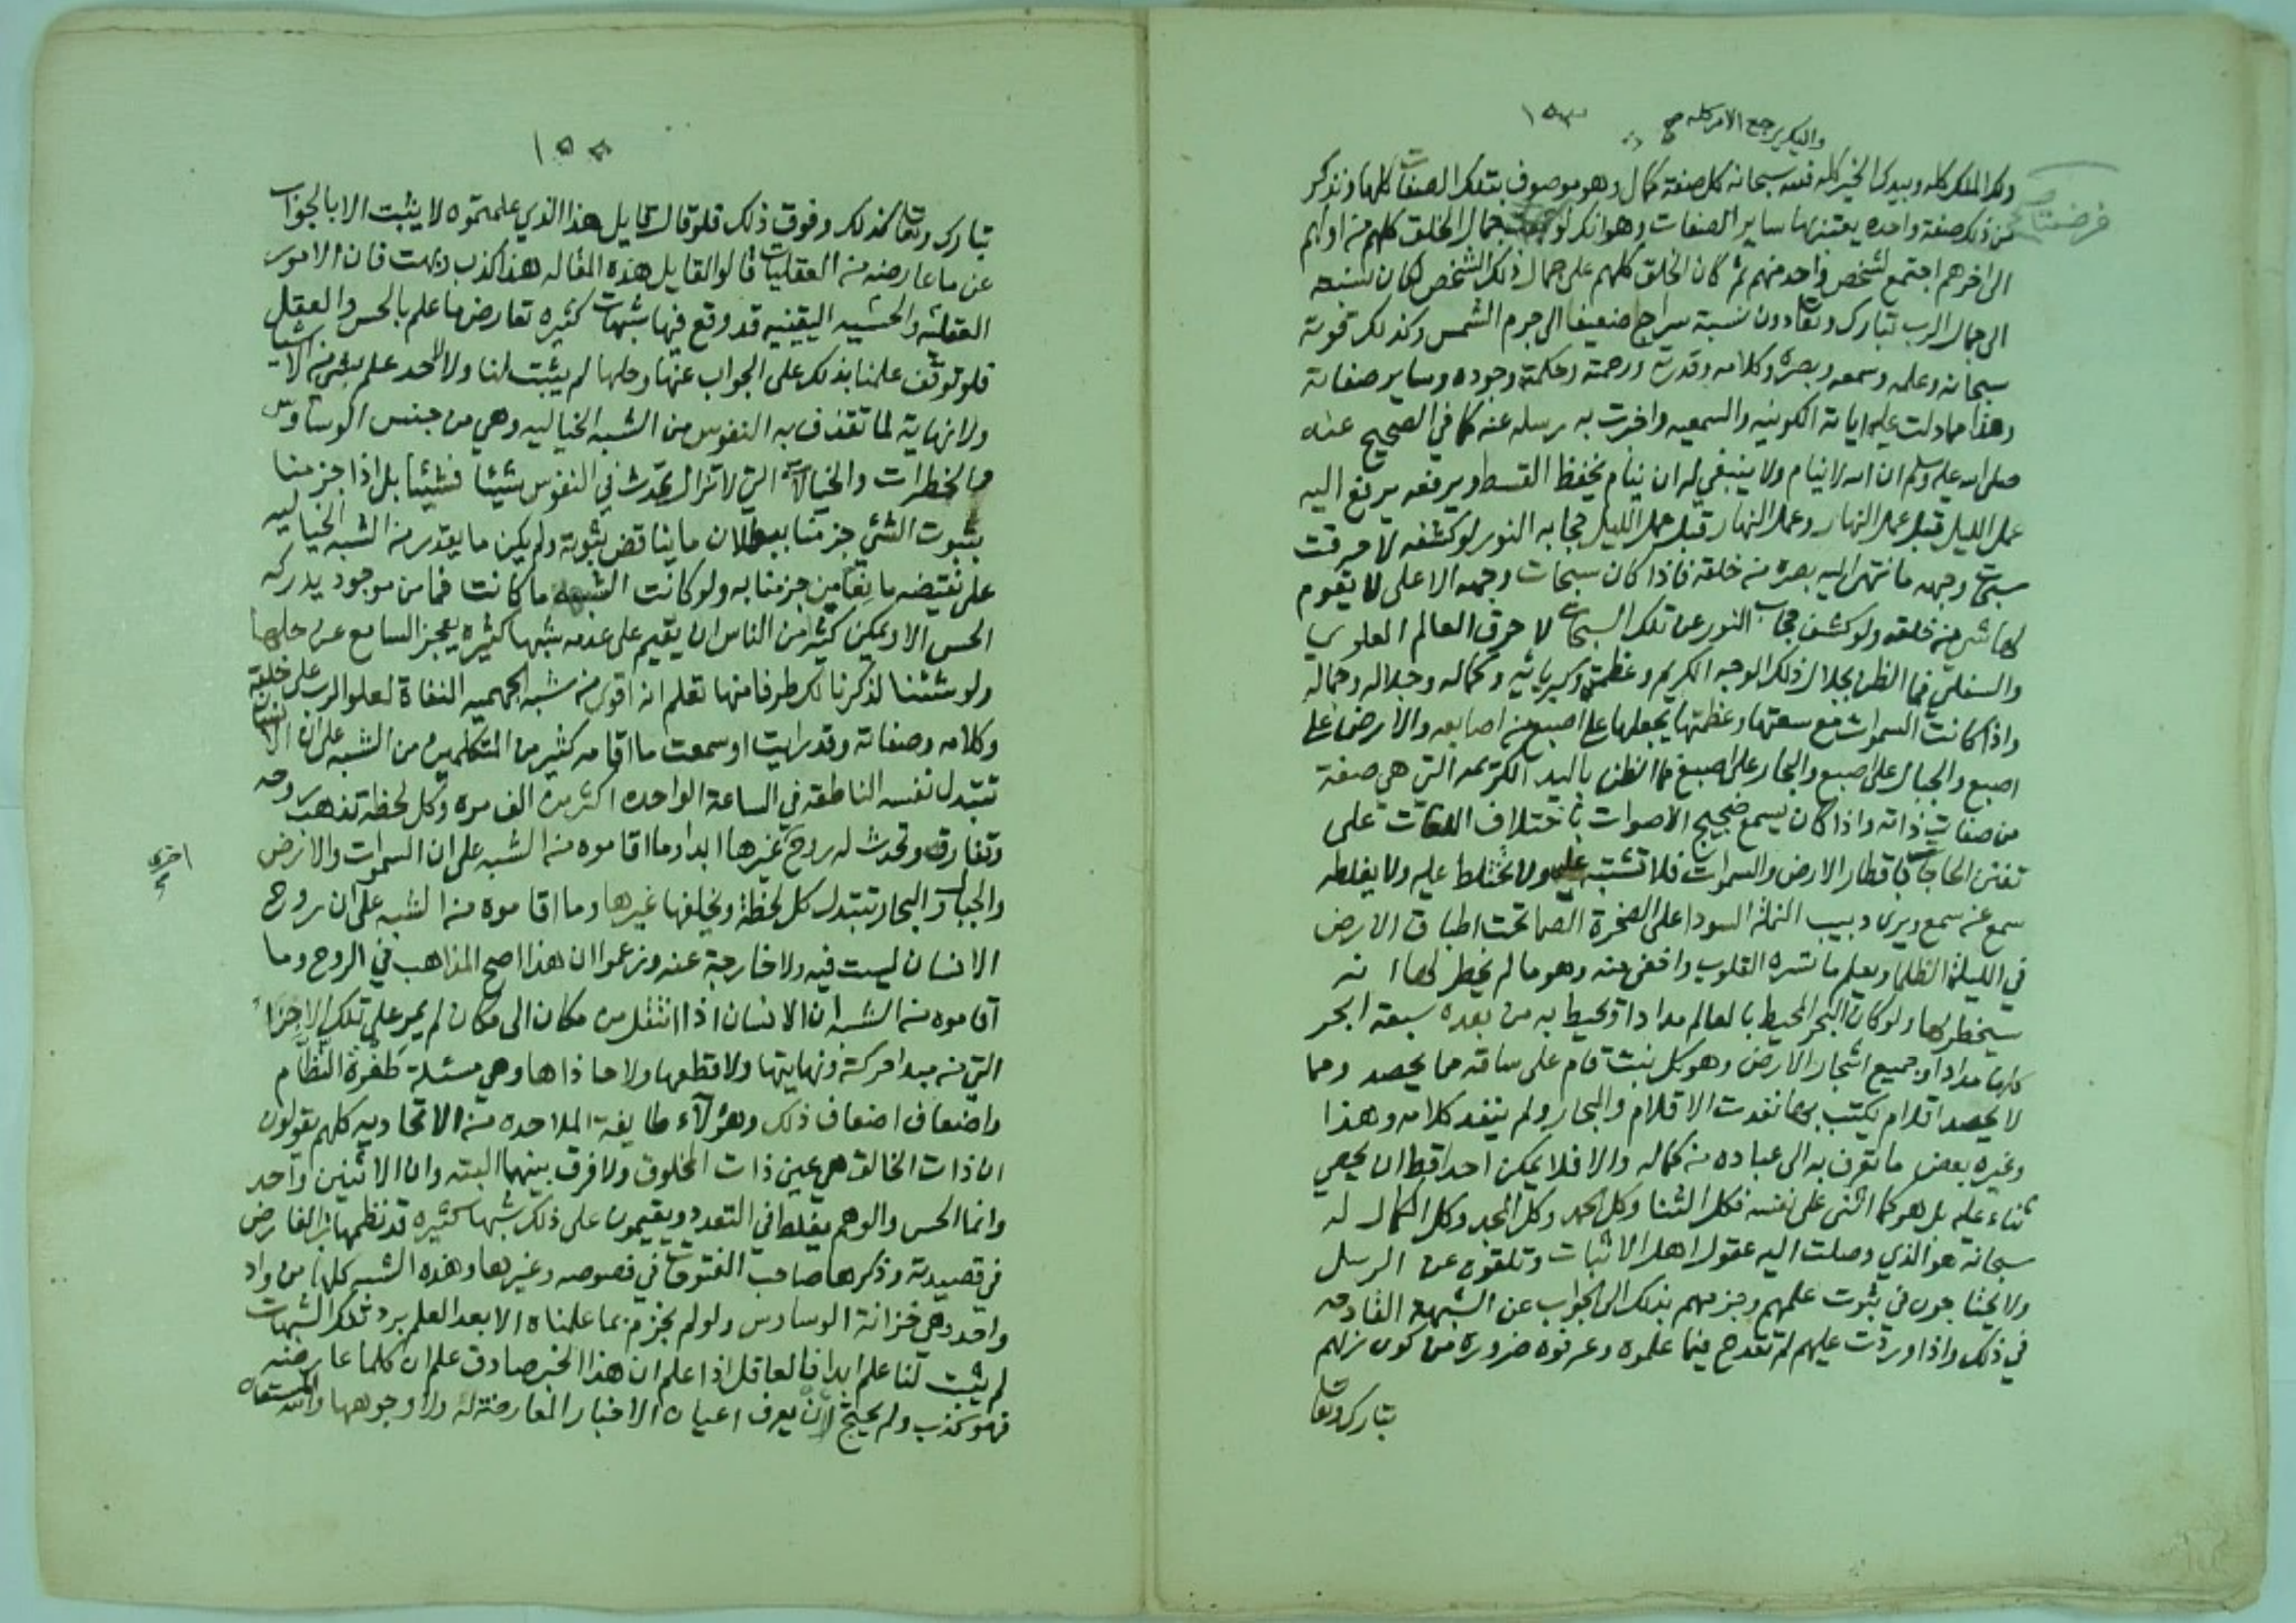 واليك يرجع الامر كله صح
١٥٣
فرضت
ولك الملك كله وبيدك الخير كله فله سبحانه كل صفة كمال وهو موصوف بتلك الصفات كلها ونذكر
من ذلك صفة واحده يعتبر بها ساير الصفات وهو انك لو جمال الخلق كلهم من اولهم
الى اخرهم اجتمع لشخص واحد منهم ثم كان الخلق كلهم على جمال ذلك الشخص لكان نسبته
الى جمال الرب تبارك وتعا دون نسبة سراج ضعيف الى جرم الشمس وكذلك قوته
سبحانه وعلمه وسمعه وبصره وكلامه وقدرته ورحمته وحكمته وجوده وساير صفاته
وهذا مما دلت عليه اياته الكونيه والسمعيه واخبرت به رسله عنه كما في الصحيح عنه
صلى الله عليه وسلم ان الله لا ينام ولا ينبغي له ان ينام يخفظ القسط ويرفعه يرفع اليه
عمل الليل قبل عمل النهار وعمل النهار قبل عمل الليل حجابه النور لو كشفه لاحرقت
سبحات وجهه ما انتهى اليه بصره من خلقه فاذا كان سبحات وجهه الاعلى لا يقوم
لها شي من خلقه ولو كشف حجاب النور عن تلك السبحات لاحرق العالم العلوي
والسفلي فما الظن بجلال ذلك الوجه الكريم وعظمته وكبريائيه وكماله وجلاله وجماله
واذا كانت السموات مع سعتها وعظمتها يجعلها على اصبع من اصابعه والارض على
اصبع والجبال على اصبع والبحار على اصبع فما الظن باليد الكريمه التي هي صفة
من صفات ذاته واذا كان يسمع ضجيج الاصوات باختلاف اللغات على
تفنن الحاجات في اقطار الارض والسموات فلا تشتبه عليه ولا تختلط عليه ولا يغلطه
سمع عن سمع ويرى دبيب النملة السودا على الصخرة الصما تحت اطباق الارض
في الليلة الظلما ويعلم ما تسره القلوب واخفى منه وهو ما لم يخطر لها انه
سيخطر لها ولو كان البحر المحيط بالعالم مدادا ويحيط به من بعده سبعة ابحر
كلها مدادا وجميع اشجار الارض وهو كل نبت قام على ساقه مما يحصد ومما
لا يحصد اقلام يكتب بها نفدت الاقلام والبحار ولم ينفد كلامه وهذا
وغيره بعض ما تعرف به الى عباده من كماله والا فلا يمكن احدا قط ان يحصي
ثناء عليه بل هو كما اثنى على نفسه فكل الثنا وكل الحمد وكل المجد وكل الكمال له
سبحانه هو الذي وصلت اليه عقول اهل الاثبات وتلقوه عن الرسل
ولا يحتاجون في ثبوت علمهم وجزمهم بذلك الى الجواب عن الشبهة القادحه
في ذلك واذا وردت عليهم لم تقدح فيما علموه وعرفوه ضروره من كون ربهم
تبارك وتعا
١٥٤
تبارك وتعا كذلك وفوق ذلك فلو قال قايل هذا الذي علمتموه لا يثبت الا بالجواب
عن ما عارضه من العقليات قالوا لقايل هذه المقاله هذا كذب وبهت فان الامور
العقلية والحسيه اليقينيه قد وقع فيها شبهات كثيره تعارض ما علم بالحس والعقل
فلو توقف علمنا بذلك على الجواب عنها وحلها لم يثبت لنا ولا لاحد علم بشي من الاشيا
ولا نهاية لما تقذف به النفوس من الشبه الخياليه وهي من جنس الوساوس
والخطرات والخيالات التي لا تزال تحدث في النفوس شيئا فشيئا بل اذا جزمنا
بثبوت الشي جزمنا ببطلان ما يناقض ثبوته ولم يكن ما يقدر من الشبه الخياليه
على نقيضه مانعا من جزمنا به ولو كانت الشبهه ما كانت فما من موجود يدركه
الحس الا ويمكن كثير من الناس ان يقيم على عدمه شبها كثيره يعجز السامع عن حلها
ولو شئنا لذكرنا لك طرفا منها تعلم انه اقوى من شبه الجهميه النفاة لعلو الرب على خلقه
وكلامه وصفاته وقد رايت او سمعت ما اقامه كثير من المتكلمين من الشبه على ان الانسان
تتبدل نفسه الناطقه في الساعة الواحده اكثر من الف مره وكل لحظة تذهب روحه
وتفارقه وتحدث له روح غيرها ابدا وما اقاموه من الشبه على ان السموات والارض
اخرى صح
والجبال والبحار تتبدل كل لحظة ويخلفها غيرها وما اقاموه من الشبه على ان روح
الانسان ليست فيه ولا خارجة عنه وزعموا ان هذا اصح المذاهب في الروح وما
اقاموه من الشبه ان الانسان اذا انتقل من مكان الى مكان لم يمر على تلك الاجزاء
التي من مبدا حركته ونهايتها ولا قطعها ولا حاذاها وهي مسئلة طفرة النظام
واضعاف اضعاف ذلك وهؤلآء طايفة الملاحده من الاتحاديه كلهم يقولون
ان ذات الخالق هي عين ذات المخلوق ولا فرق بينهما البته وان الاثنين واحد
وانما الحس والوهم يغلط في التعدد ويقيمون على ذلك شبها كثيره قد نظمها ابن الفارض
في قصيدته وذكرها صاحب الفتوحات في فصوصه وغيرها وهذه الشبه كلها من واد
واحد وهي خزانة الوساوس ولو لم نجزم بما علمناه الا بعد العلم برد تلك الشبهات
لم يثبت لنا علم ابدا فالعاقل اذا علم ان هذا الخبر صادق علم ان كلما عارضه
فهو كذب ولم يحتج لان يعرف اعيان الاخبار المعارضة له ولا وجوهها والله المستعان